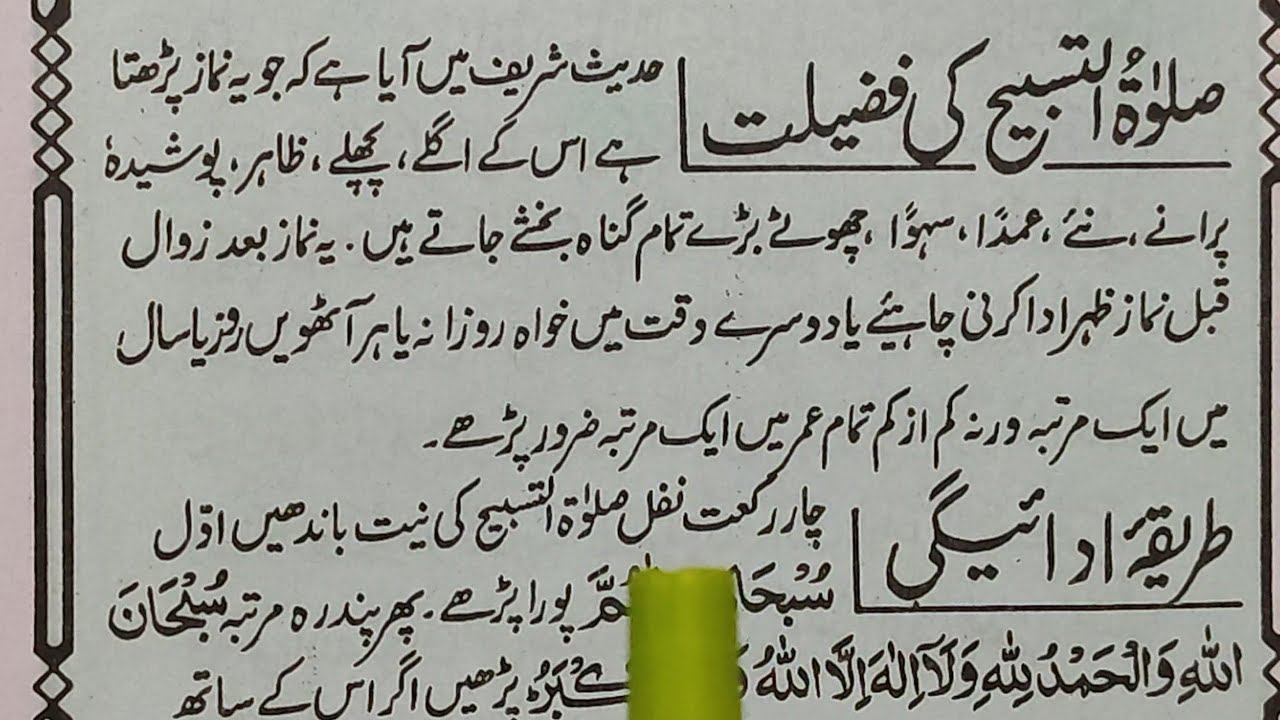 صلوٰۃُ التسبیح کی فضیلت
حدیث شریف میں آیا ہے کہ جو یہ نماز پڑھتا
ہے اس کے اگلے، پچھلے، ظاہر، پوشیدہ
پرانے، نئے، عمدًا، سہوًا، چھوٹے بڑے تمام گناہ بخشے جاتے ہیں۔ یہ نماز بعد زوال
قبل نماز ظہر ادا کرنی چاہیئے یا دوسرے وقت میں خواہ روزانہ یا ہر آٹھویں روز یا سال
میں ایک مرتبہ ورنہ کم از کم تمام عمر میں ایک مرتبہ ضرور پڑھے۔
طریقۂ ادائیگی
چار رکعت نفل صلوٰۃ التسبیح کی نیت باندھیں اوّل
پورا پڑھے۔ پھر پندرہ مرتبہ سُبْحَانَ
اللّٰہِ وَالْحَمْدُ لِلّٰہِ وَلَآ اِلٰہَ اِلَّا اللّٰہُ پڑھیں اگر اس کے ساتھ